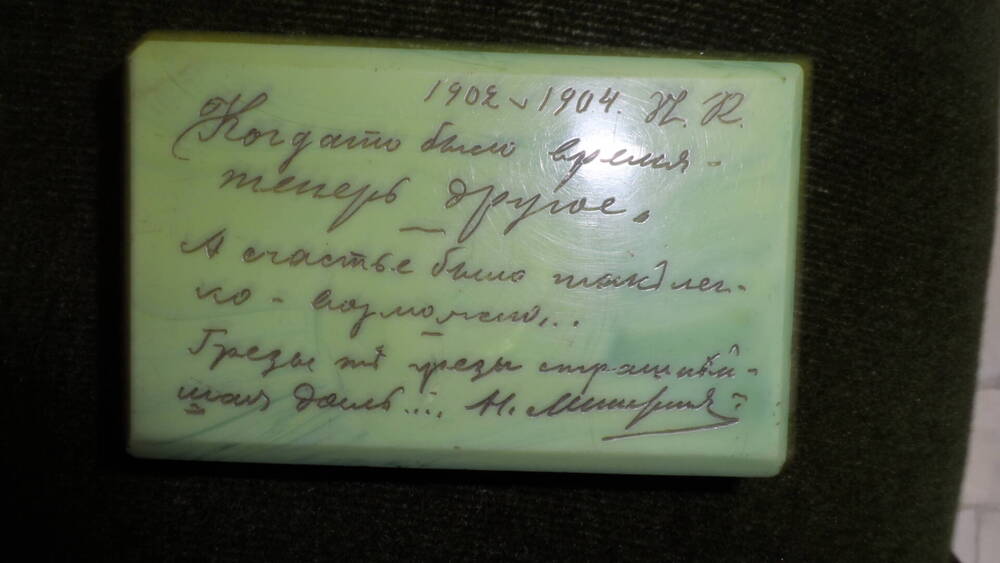 1902 1904. Н. К.
Когдато было время -
теперь другое.
А счастье было такъ лег-
ко - возможно...
Грезы грезы страшнѣй-
шая даль....